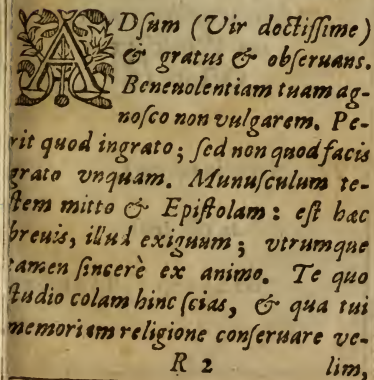 ADſum (Vir doctiſſime)
& gratus & obſeruans.
Beneuolentiam tuam ag-
noſco non vulgarem. Pe-
rit quod ingrato; ſed non quod facis
grato vnquam. Munuſculum te-
ſtem mitto & Epiſtolam: eſt hæc
breuis, illud exiguum; vtrumque
tamen ſincerè ex animo. Te quo
ſtudio colam hinc ſcias, & qua tui
memoriam religione conſeruare ve-
R 2 lim,